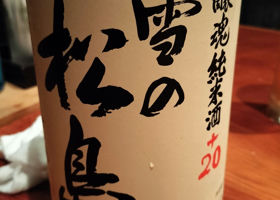 醸魂純米酒
+20
雪の
松島